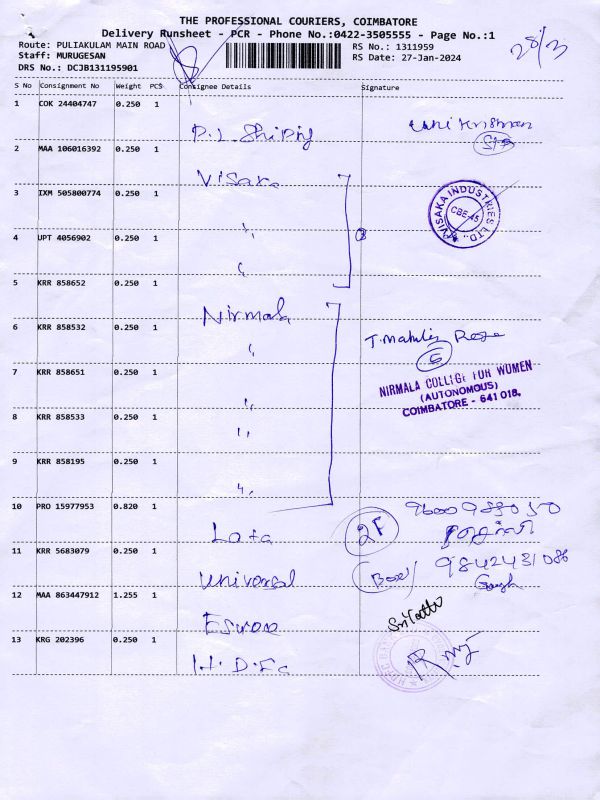 THE PROFESSIONAL COURIERS, COIMBATORE
Delivery Runsheet - PCR - Phone No.:0422-3505555 - Page No.:1
Route: PULIAKULAM MAIN ROAD RS No.: 1311959
Staff: MURUGESAN RS Date: 27-Jan-2024
DRS No.: DCJB131195901
S No Consignment No Weight PCS Consignee Details Signature
1 COK 24404747 0.250 1
2 MAA 106016392 0.250 1
Visaka
3 IXM 505800774 0.250 1
VISAKA INDUSTRIES LTD.,
CBE-45
4 UPT 4056902 0.250 1
5 KRR 858652 0.250 1
Nirmala
6 KRR 858532 0.250 1
6
7 KRR 858651 0.250 1
NIRMALA COLLEGE FOR WOMEN
(AUTONOMOUS)
COIMBATORE - 641 018.
8 KRR 858533 0.250 1
9 KRR 858195 0.250 1
10 PRO 15977953 0.820 1
Lata
11 KRR 5683079 0.250 1
9842431086
Universal
12 MAA 863447912 1.255 1
13 KRG 202396 0.250 1
H.D.F.C